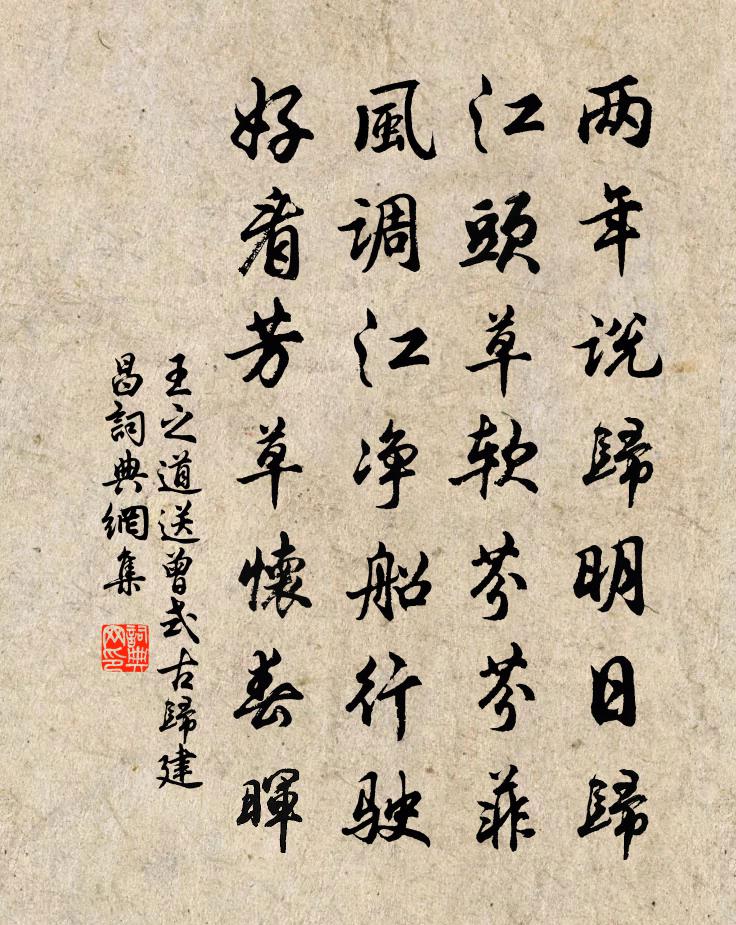 两年说歸明日歸
江頭草软芬芬菲
風调江净船行駛
好看芳草懷春暉
王之道送曾式古歸建
昌詞典網集
詞典
网印